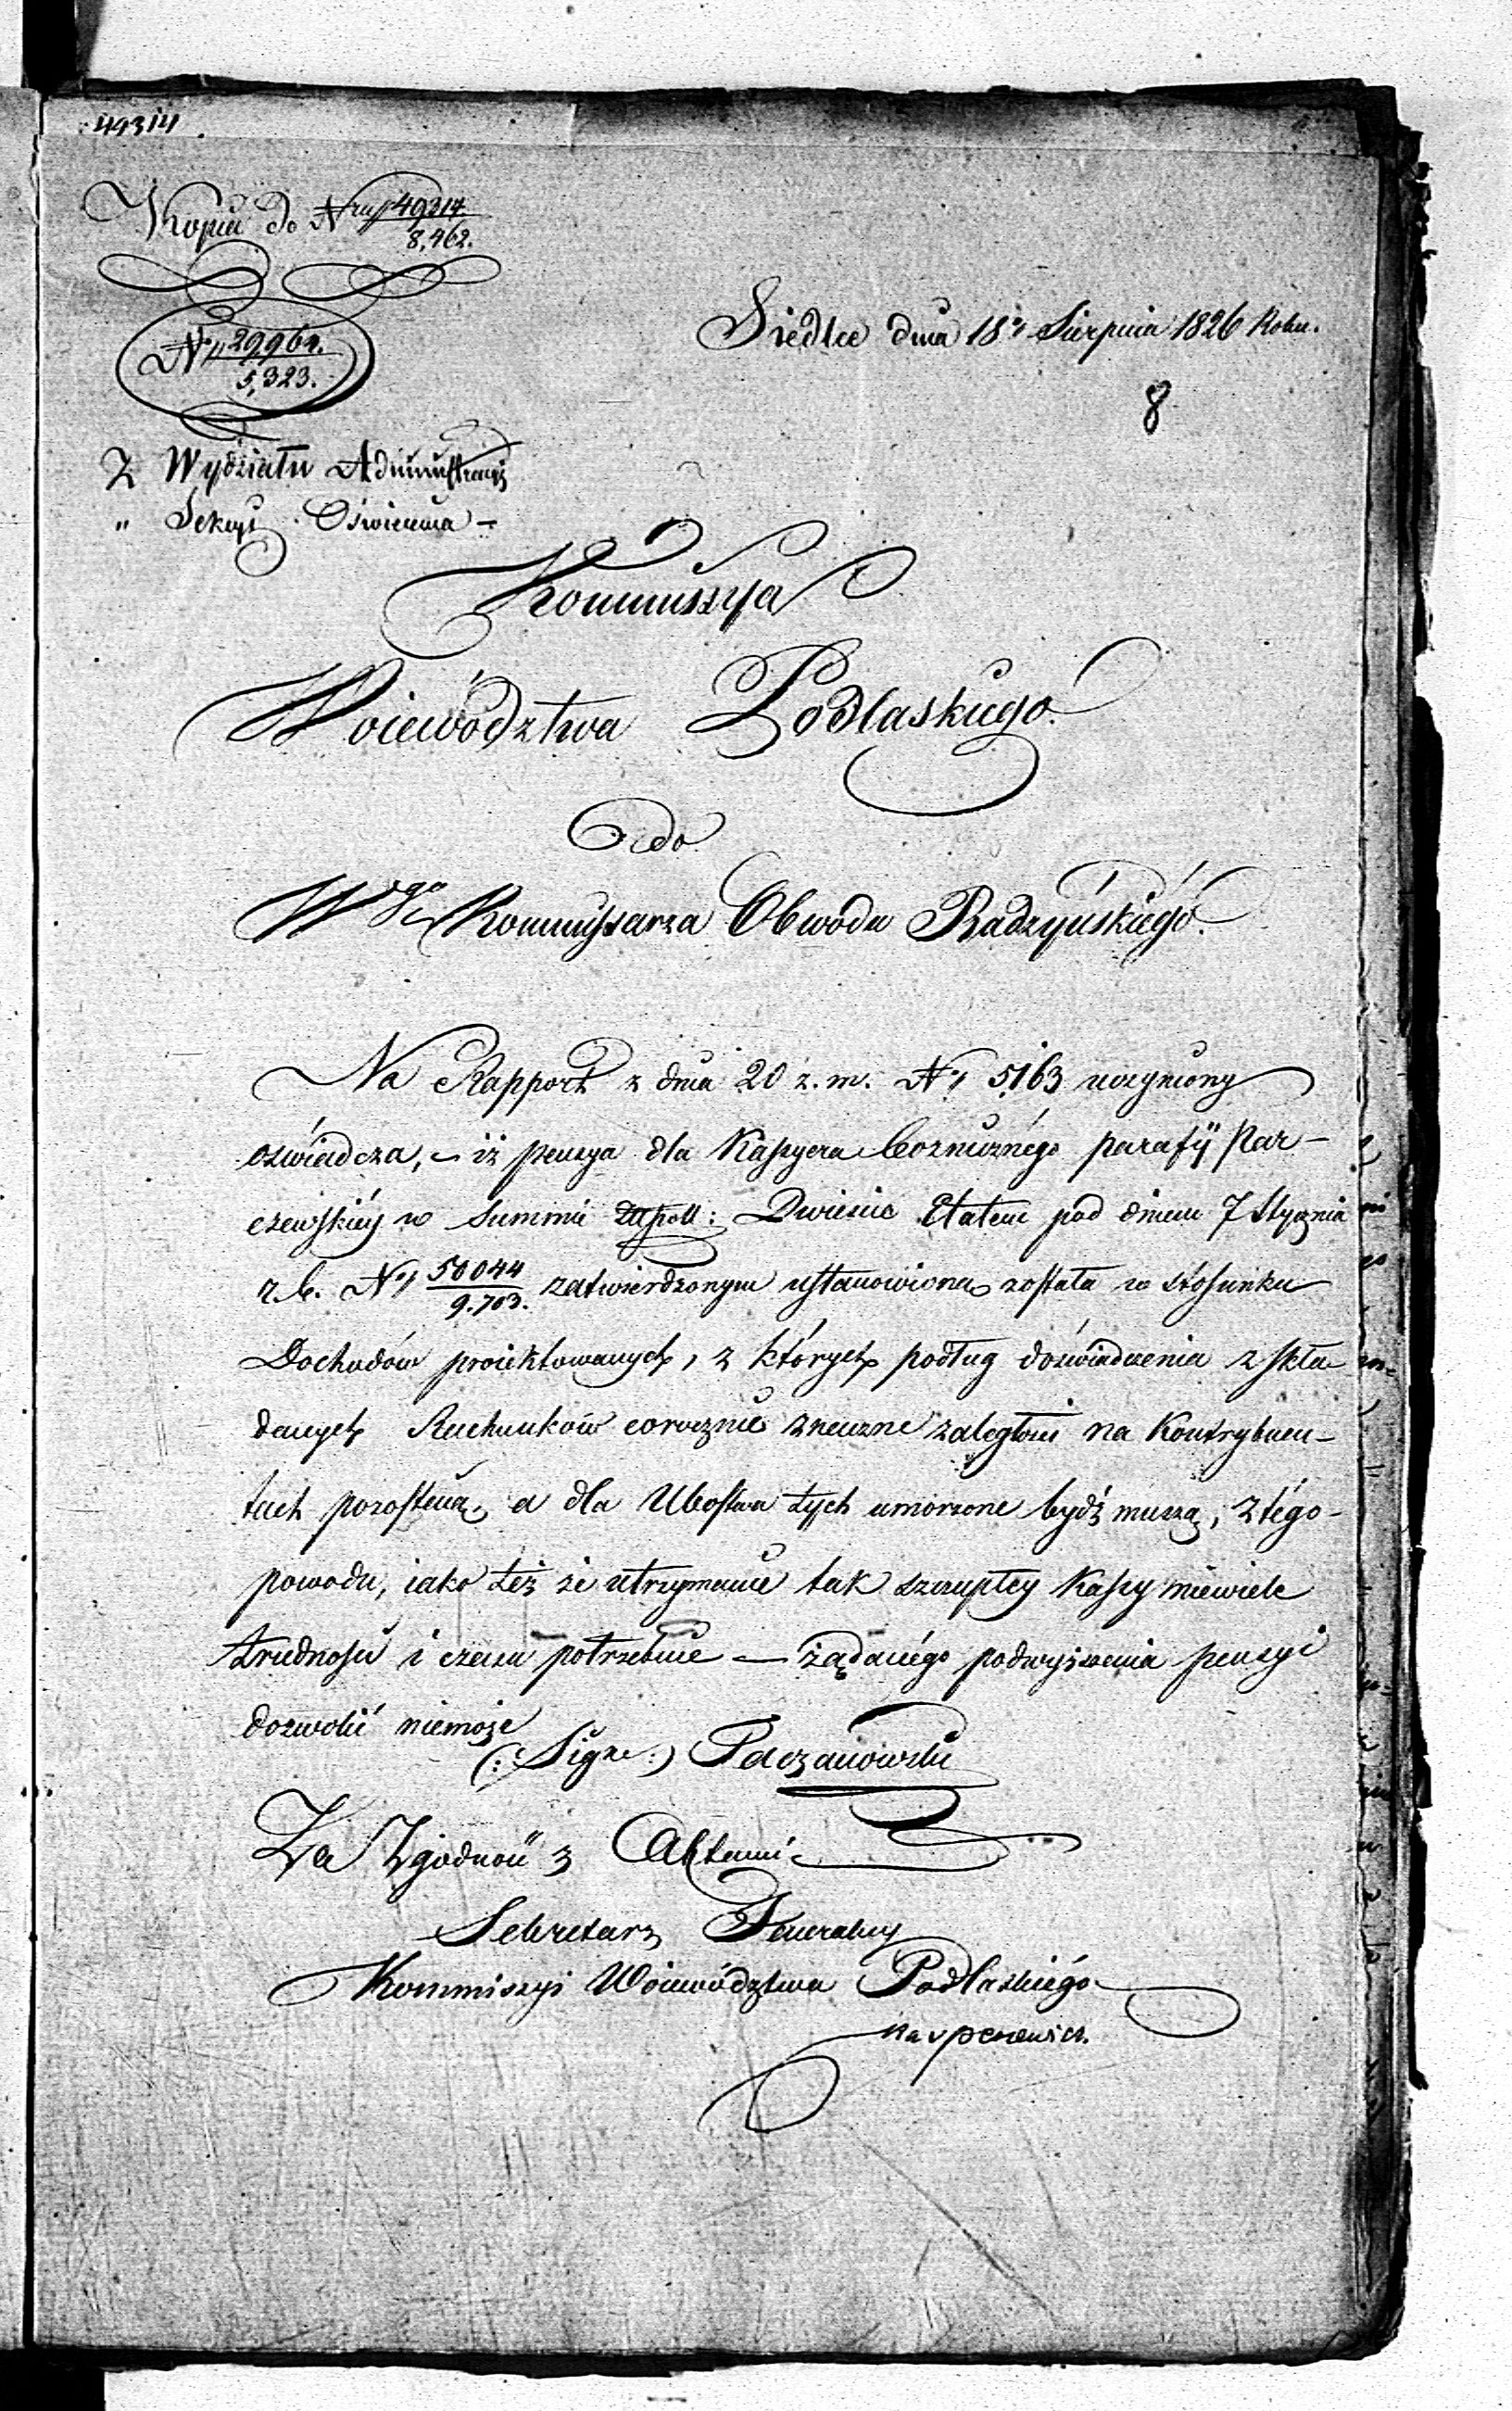 49314
Kopia do Nru 49314/8,462.
Siedlce dnia 18 Sierpnia 1826 Roku.
N 29,964./5,323.
8
Z Wydziału Administracyi
" Sekcyi Oświecenia –
Kommissya
Woiewództwa Podlaskiego.
do
Wgo Kommissarza Obwodu Radzyńskiégo.
Na Rapport z dnia 20 z. m. N 5163 uczyniony
oświadcza, – iż pensya dla Kassyera bożniczného parafij Par-
czewskiéy w Summie Złpoll: Dwieście Etatem pod dniem 7 Stycznia
r. b. N 50044/9.703. zatwierdzonym ustanowioną została w stosunku
Dochodów proiektowanych, z których podług doświadczenia z skła-
danych Rachunków corocznie znaczne zaległości na Kontrybuen-
tach pozostaią, a dla Ubóstwa tych umorzone bydź muszą, z tégo-
powodu, iako też że utrzymanie tak szczupłey Kassy niewiele
trudności i czasu potrzebuie – żądanégo podwyższenia pensyi
dozwolić niemoże
(: Sign :)
Za Zgodność z Aktami
Sekretarz Generalny
Kommissyi Woiewództwa Podlaskiégo